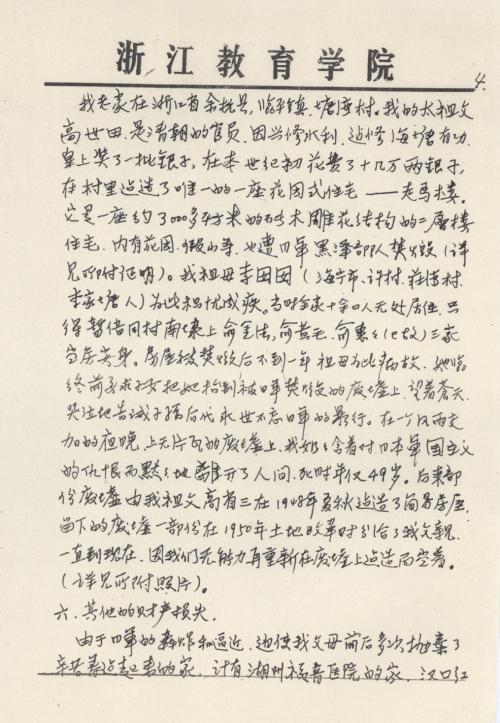 浙江教育学院
4.
我老家在浙江省余杭县,临平镇,塘湾村。我的太祖父
高世田,是清朝的官员,因兴修水利,造修海塘有功,
皇上奖了一批银子,在本世纪初花费了十几万两银子,
在村里造造了唯一的一座花园式住宅——走马楼。
它是一座约3000多平方米的砖木雕花结构的二层楼
住宅,内有花园、假山等,也遭日军黑泽部队焚毁(详
见所附证明)。我祖母李囡囡(海宁市、许村、庄
李家塘人)为此担忧成疾。当时全家十余口人无处居住,只
得暂借同村南埭上俞金法,俞 毛,俞惠(已故)三家
房安身。房屋被焚毁后不到一年祖母为此病故,她临
终前要求子女把她抬到被日军焚毁的废墟上,望着苍天,
哭泣地告诫子孙后代永世不忘日军的暴行。在一个风雨交
加的夜晚,上无片瓦的废墟上,我奶奶含着对日本军国主义
的仇恨而默默地离开了人间,死时年仅49岁。后来部
份废墟由我祖父高有三在1948年夏秋造了简易房屋,
留下的废墟一部份在1950年土地改革时分给了我父亲,
一直到现在,因我们无能力再重新在废墟上造造而空着。
(详见所附照片)。
六、其他的财产损失。
由于日军的轰炸和逼近,迫使我父母前后多次抛弃了
辛苦营造起来的家,计有湖州福音医院的家,汉口红